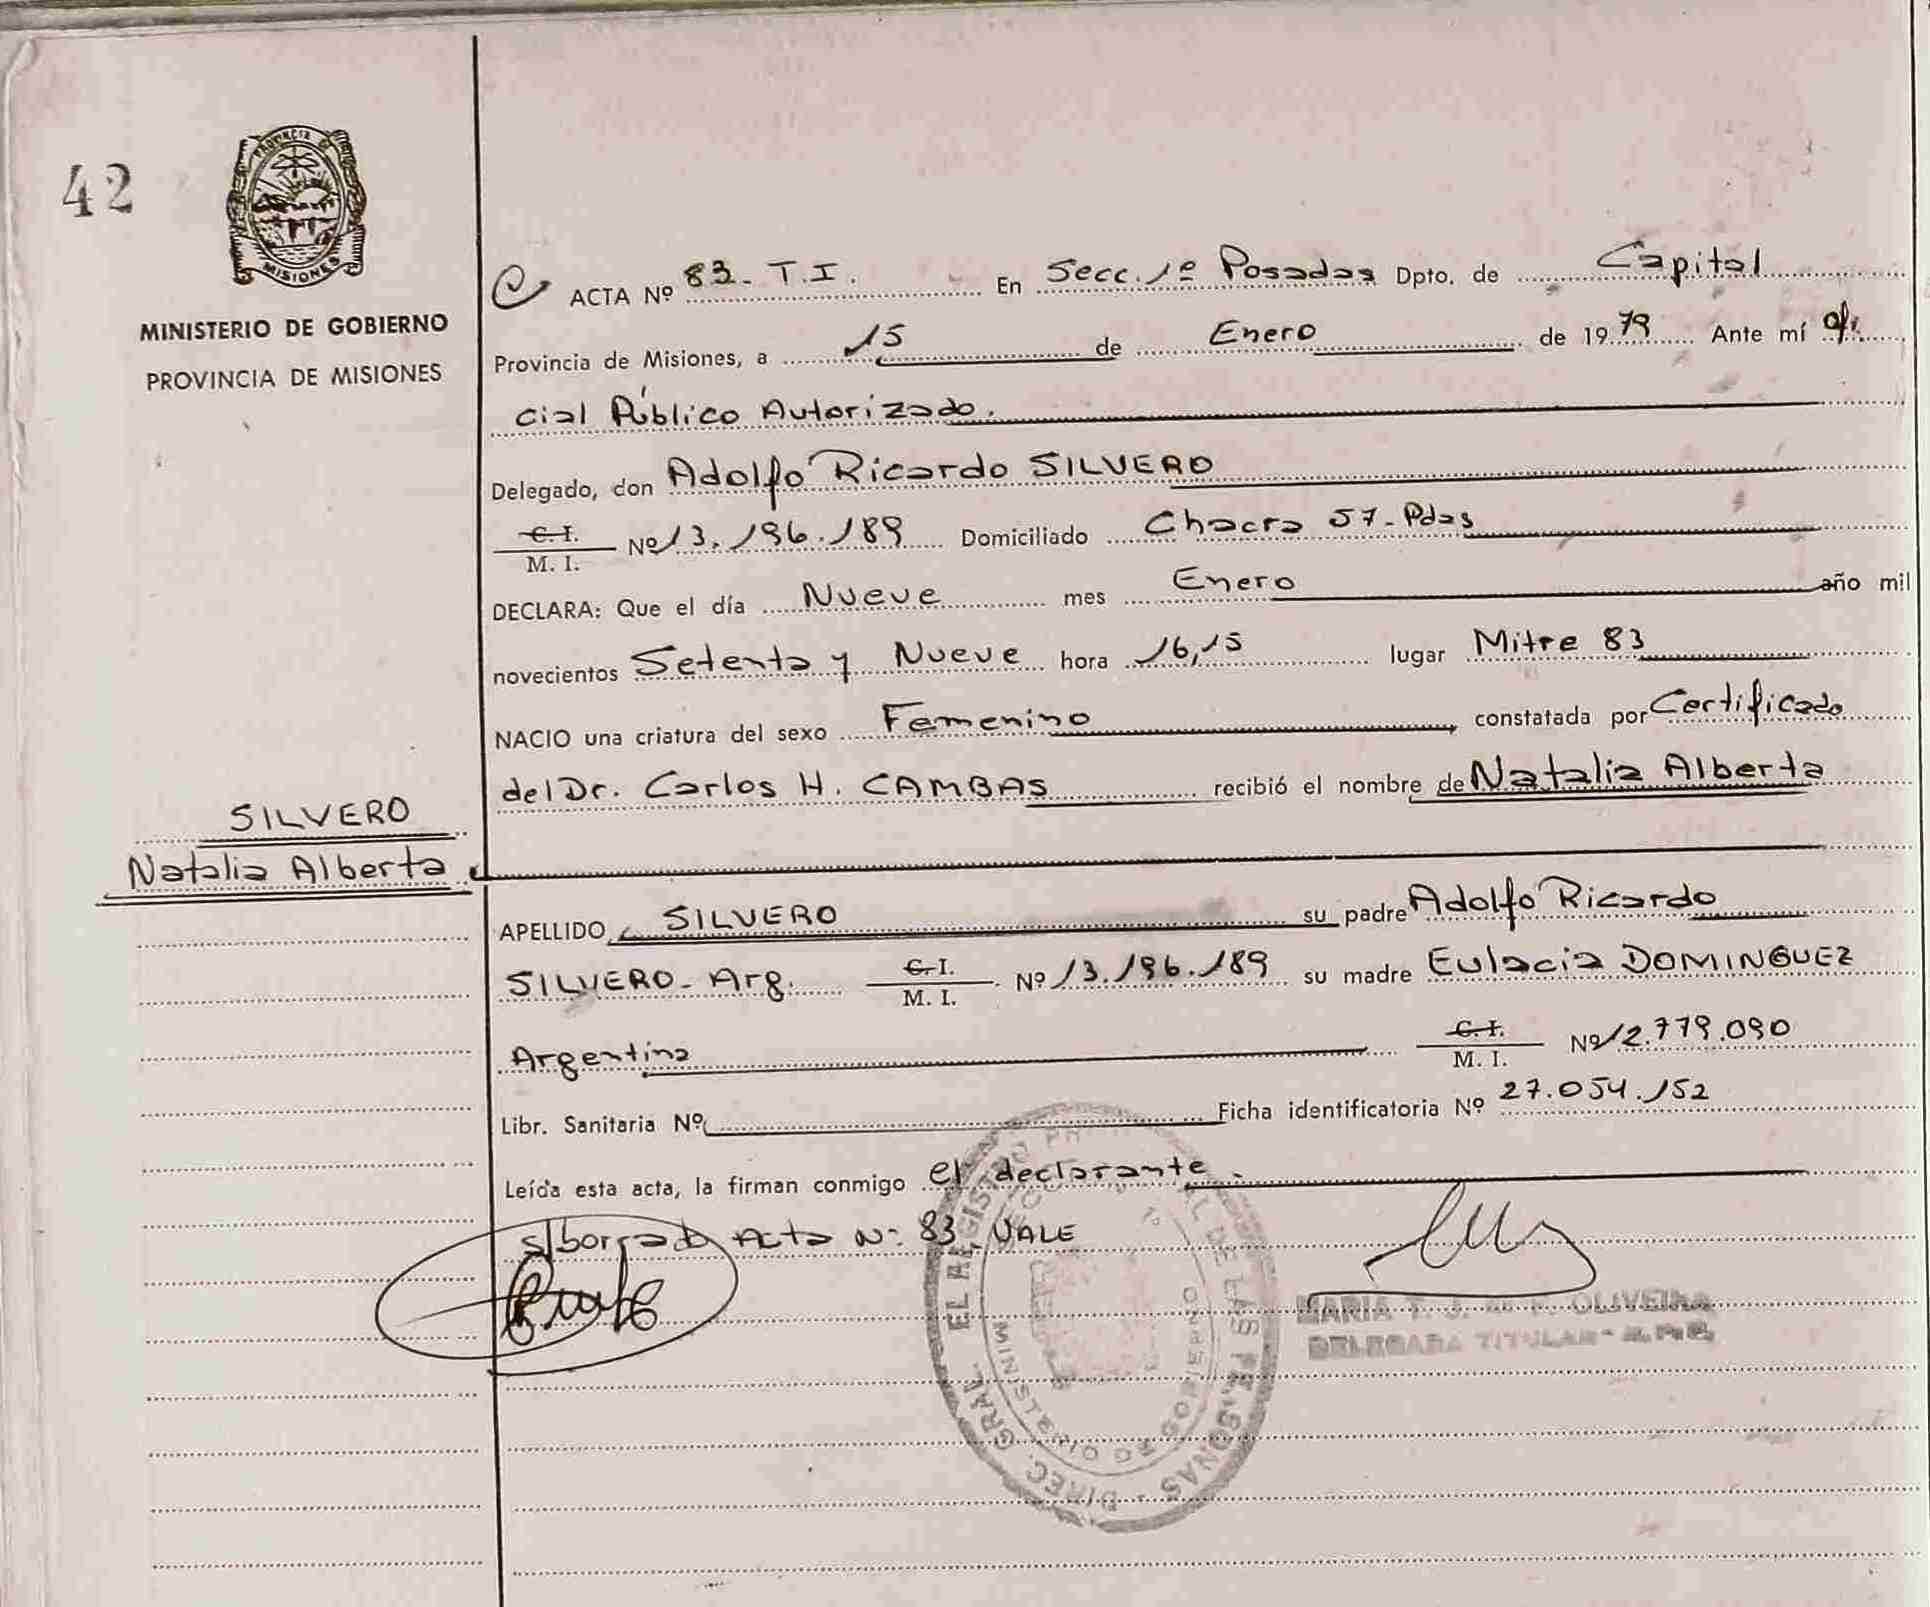 42
PROVINCIA DE
MISIONES
MINISTERIO DE GOBIERNO
PROVINCIA DE MISIONES
ACTA Nº 83 - T.I. En Secc. 1º Posadas Dpto. de Capital
Provincia de Misiones, a 15 de Enero de 1979 Ante mí Ofi
cial Público Autorizado.
Delegado, don Adolfo Ricardo SILVERO
C. I.
M. I. Nº 13.196.189 Domiciliado Chacra 57 - Pdas
DECLARA: Que el día Nueve mes Enero año mil
novecientos Setenta y Nueve hora 16,15 lugar Mitre 83
NACIO una criatura del sexo Femenino, constatada por Certificado
del Dr. Carlos H. CAMBAS recibió el nombre de Natalia Alberta
SILVERO
Natalia Alberta
APELLIDO SILVERO su padre Adolfo Ricardo
SILVERO - Arg. C. I. M. I. Nº 13.196.189 su madre Eulacia DOMINGUEZ
Argentina C. I. M. I. Nº 12.779.090
Libr. Sanitaria Nº Ficha identificatoria Nº 27.054.152
Leída esta acta, la firman conmigo el declarante.
s/borrado Acta Nº 83, VALE
MARIA T. J. OLIVEIRA
DELEGADA TITULAR
DIREC. GRAL. DE LAS PERSONAS
MINISTERIO DE GOBIERNO